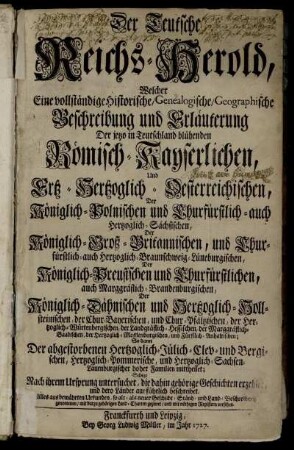 Der Teutsche
Reichs-Herold,
Welcher
Eine vollständige Historische/Genealogische/Geographische
Beschreibung und Erläuterung
Der jetzo in Teutschland blühenden
Römisch-Kayserlichen,
und
Ertz-Hertzoglich-Oesterreichischen,
Der
Königlich-Polnischen und Churfürstlich-auch
Hertzoglich-Sächsischen,
Der
Königlich-Groß-Britannischen, und Chur-
fürstlich-auch Hertzoglich-Braunschweig-Lüneburgischen,
Der
Königlich-Preussischen und Churfürstlichen,
auch Marggräflich-Brandenburgischen,
Der
Königlich-Dähnischen und Hertzoglich-Holl-
steinischen, der Chur-Bayerischen, und Chur-Pfältzischen, der Her-
tzoglich-Würtembergischen, der Landgräflich-Hessischen, der Marggräflich-
Baadischen, der Hertzoglich-Mecklenburgischen, und Fürstlich-Anhaltischen;
So dann
Der abgestorbenen Hertzoglich-Jülich-Clev-und Bergi-
schen, Hertzoglich-Pommerische, und Hertzoglich-Sachsen-
Lauenburgischer hoher Familien mittheilet;
Selbige
Nach ihrem Ursprung untersuchet, die dahin gehörige Geschichten
und dero Länder ausführlich beschreibet
Alles aus bewährten Urkunden,
Franckfurth und Leipzig,
Bey Georg Ludwig Möller, im Jahr 1727.